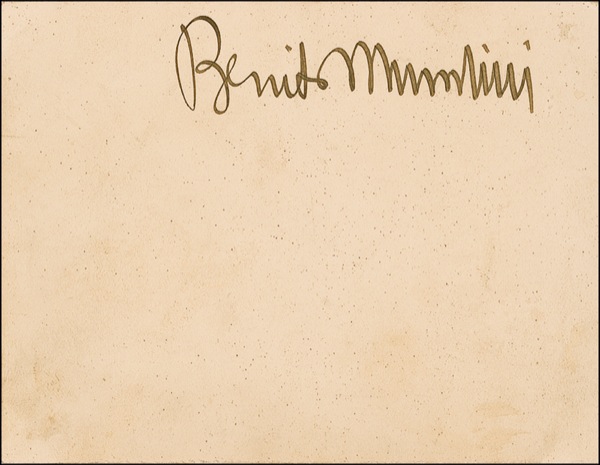 Benito Mussolini